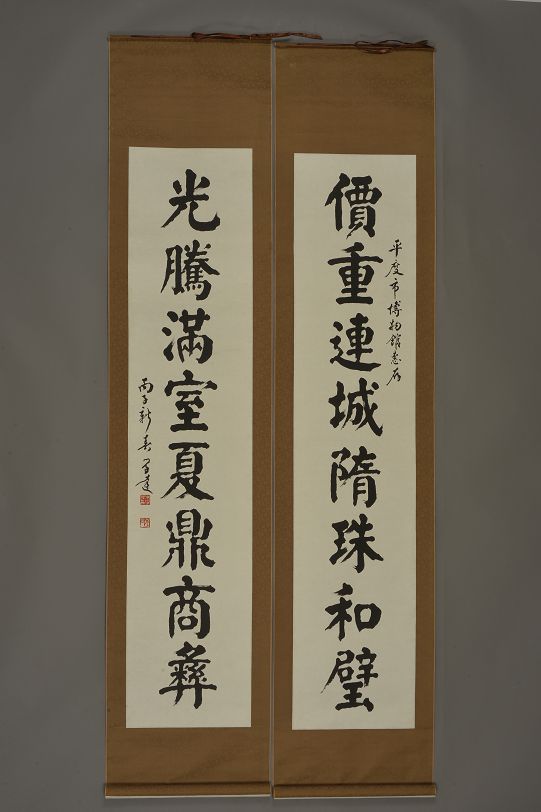 價重連城隋珠和璧
平度市博物館惠存
光騰滿室夏鼎商彝
丙子新春